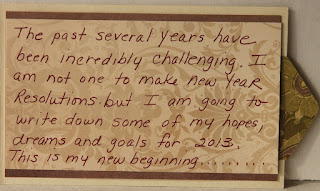 The past several years have
been incredibly challenging. I
am not one to make new YeaR
Resolutions but I am going to
write down some of my hopes,
dreams and goals for 2013.
This is my new beginning..........